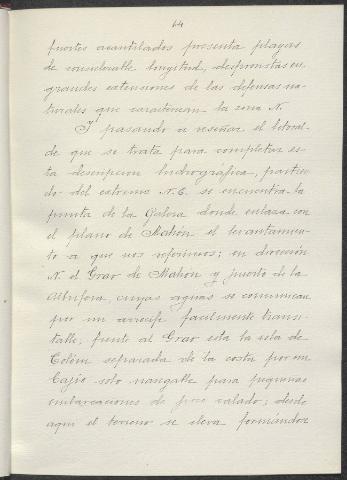 64
fuertes acantilados presenta playas
de considerable longitud, desprovistas en
grandes extensiones de las defensas na-
turales que caracterizan la zona N.
Y pasando a reseñar el litoral
de que se trata para completar es-
ta descripcion hidrográfica, partien-
do del extremo N.E. se encuentra la
punta de la Galera donde enlaza con
el plano de Mahón el levantamien-
to a que nos referimos; en dirección
N. el Grao de Mahón y puerto de la
Albufera, cuyas aguas se comunican
por un arrecife facilmente transi-
table; frente al Grao esta la isla de
Colóm separada de la costa por un
Caxio solo navegable para pequeñas
embarcaciones de poco calado; desde
aqui el terreno se eleva formándose